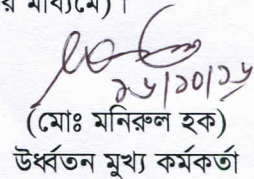 র মাধ্যমে)।
২৬/১০/১৬
(মোঃ মনিরুল হক)
উর্ধ্বতন মুখ্য কর্মকর্তা